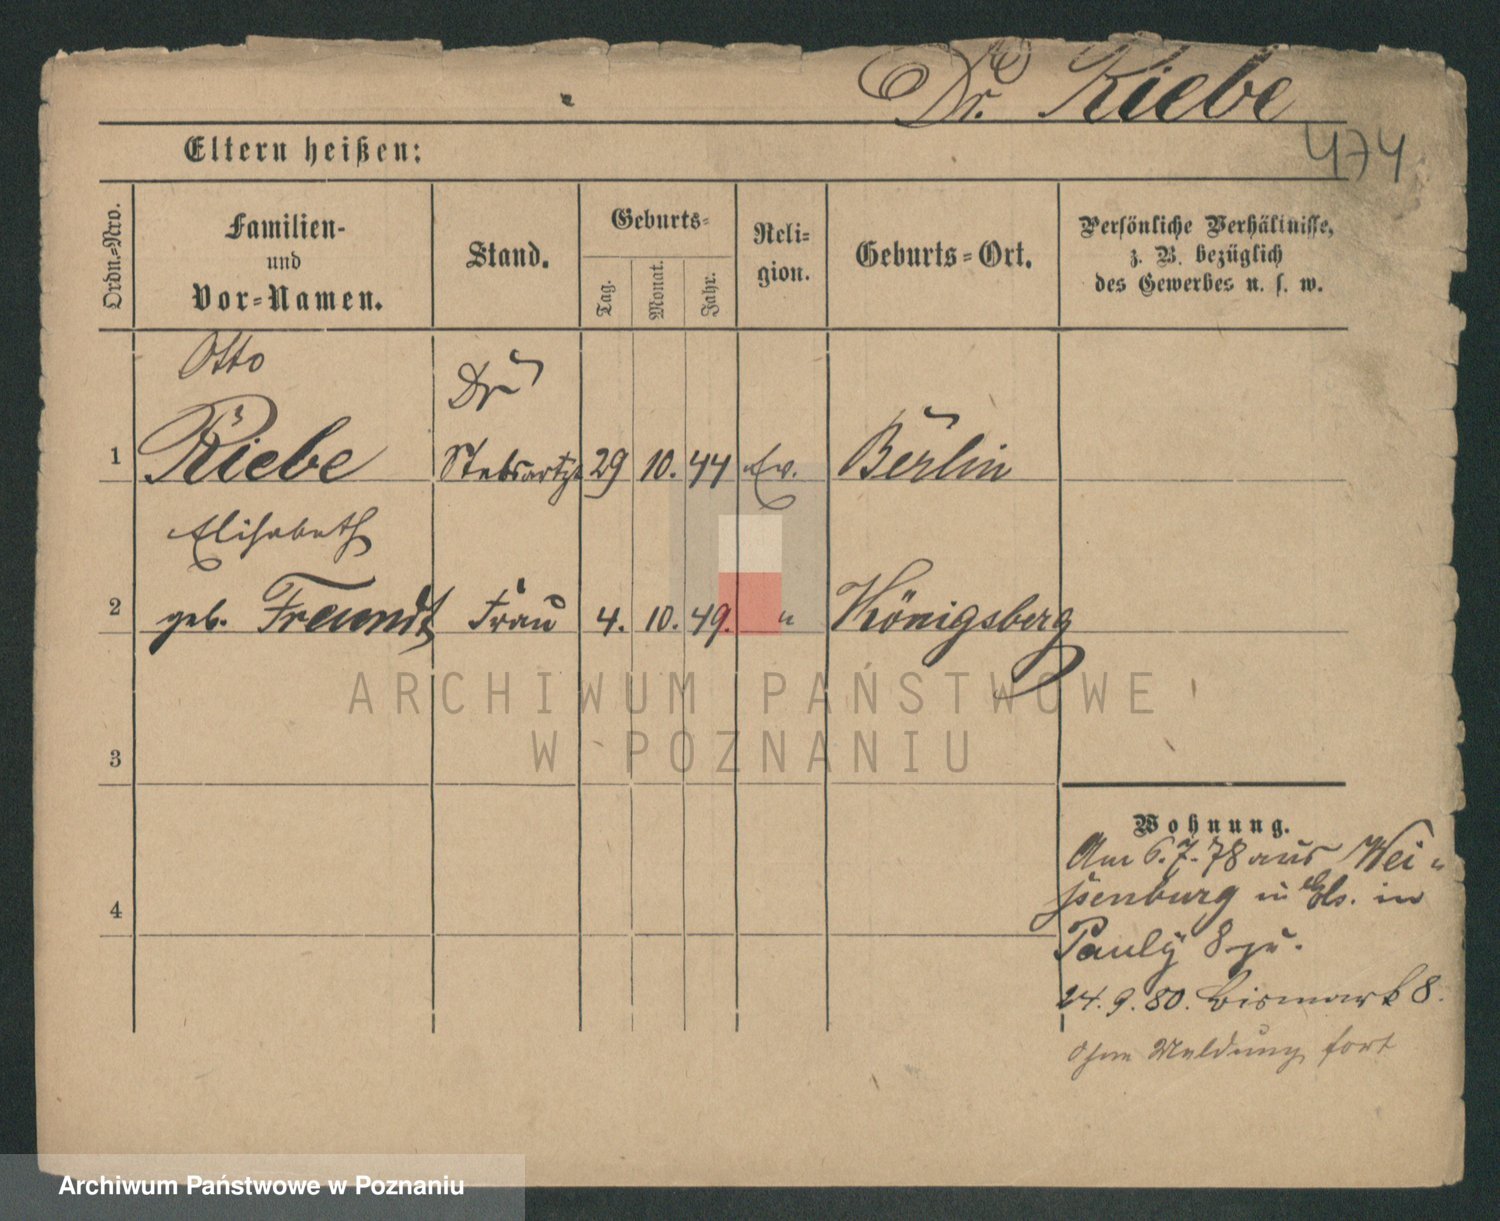 Dr. Riebe
474
Eltern heißen:
Ordn.-Nro.
Familien-
und
Vor-Namen.
Stand.
Geburts-
Tag.
Monat.
Jahr.
Reli-
gion.
Geburts-Ort.
Persönliche Verhältnisse,
z. B. bezüglich
des Gewerbes u. s. w.
Otto
Dr
1 Riebe Stabsartzt 29 10. 44 Ev. Berlin
Elisabeth
2 geb. Freundt Frau 4. 10. 49. " Königsberg
ARCHIWUM PAŃSTWOWE
W POZNANIU
3
Wohnung.
Am 6.7.78 aus Wei-
ssenburg in Els. in
4
Pauly 8 zu.
24.9.80. Bismark 8.
Ohne Meldung fort
Archiwum Państwowe w Poznaniu